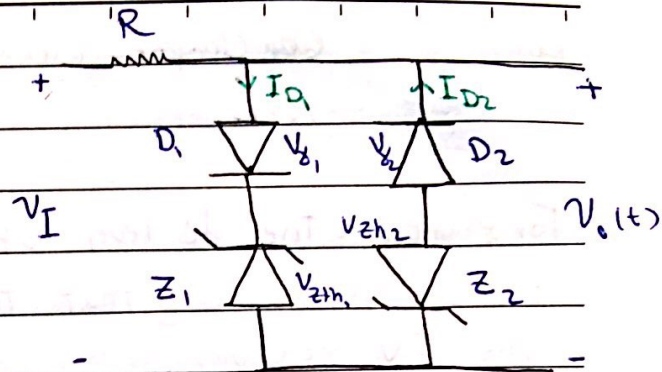 R
+ I_D1 I_D2 +
D1 Vγ1 Vγ2 D2
V_I V_Zh2 V_o(t)
Z1 V_Zth1 Z2
- -